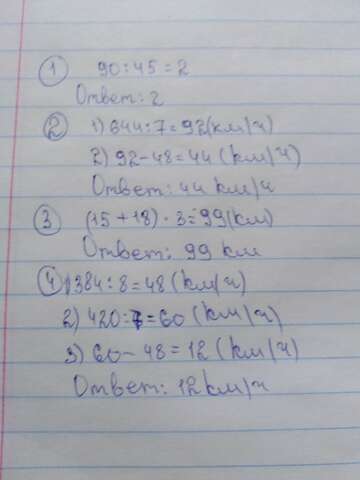 ① 90:45=2
Ответ: 2
② 1) 644:7=92(км/ч)
2) 92-48=44 (км/ч)
Ответ: 44 км/ч
③ (15+18)·3=99(км)
Ответ: 99 км
④ 1)384:8=48(км/ч)
2) 420:7=60 (км/ч)
3) 60-48=12 (км/ч)
Ответ: 12км/ч